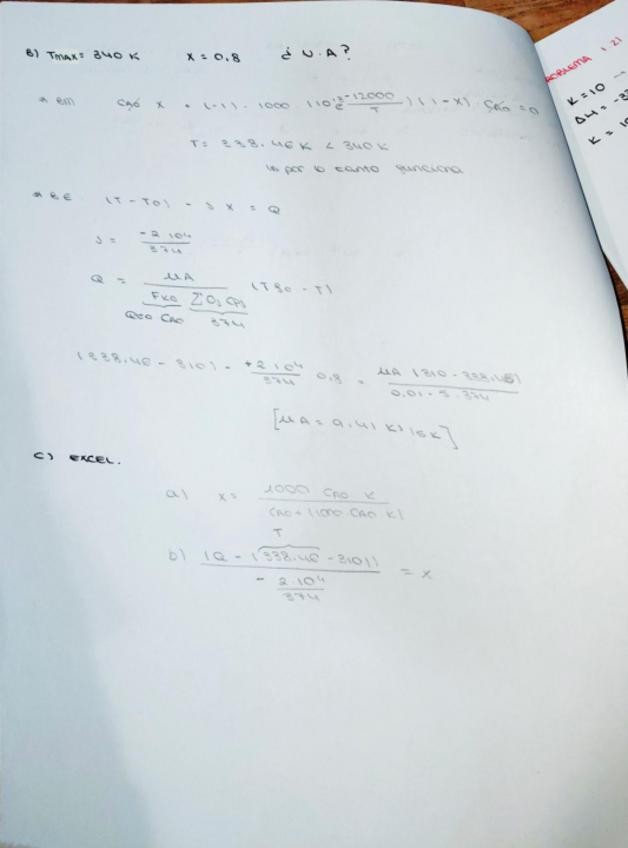 B) TMAX = 340 K X = 0,8 ¿ U·A?
* BM CA0 X + (-1) · 1000 · (10^13 e^(-12000/T)) (1-X) · CA0 = 0
T = 338.46 K < 340 K
↳ por lo tanto funciona
* BE (T - T0) - J X = Q
J = -2 10^4 / 374
Q = UA / (FK0 ΣOj Cpj) (T80 - T)
Q00 CA0 374
(338.46 - 310) - +2 10^4 / 374 0,8 = UA (310 - 338.46) / 0.01 · 5 · 374
[UA = 9.41 KJ/s K]
C) EXCEL.
a) X = 1000 CA0 K / CA0 + (1000 · CA0 K)
T
b) (Q - (338.46 - 310)) / - 2·10^4 / 374 = X
PROBLEMA 1.21
K = 10
ΔH = -3
K = 10